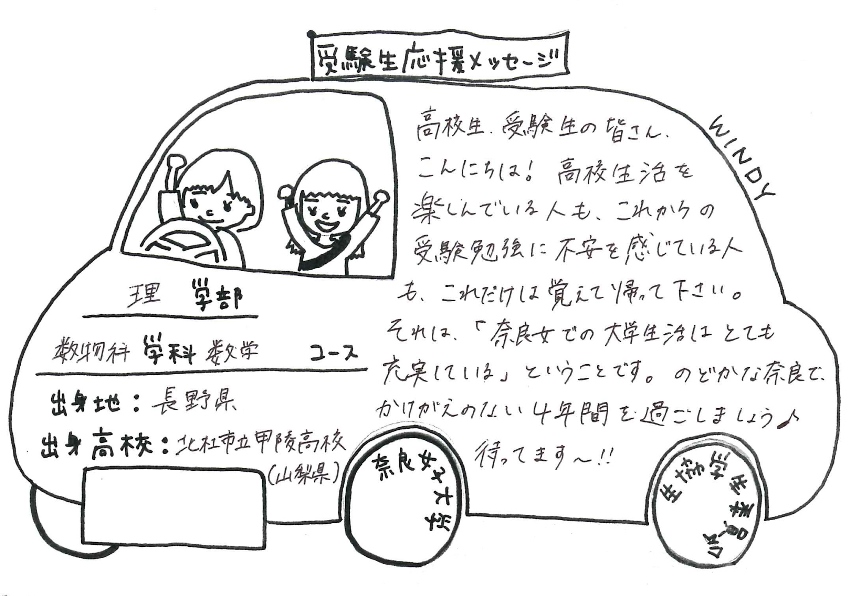 受験生応援メッセージ
WINDY
高校生、受験生の皆さん、
こんにちは！ 高校生活を
楽しんでいる人も、これからの
受験勉強に不安を感じている人
も、これだけは覚えて帰って下さい。
それは、「奈良女での大学生活はとても
充実している」ということです。のどかな奈良で、
かけがえのない4年間を過ごしましょう♪
待ってます〜!!
理 学部
数物科 学科 数学 コース
出身地：長野県
出身高校：北杜市立甲陵高校
(山梨県)
奈良女子大学
生協学生委員会